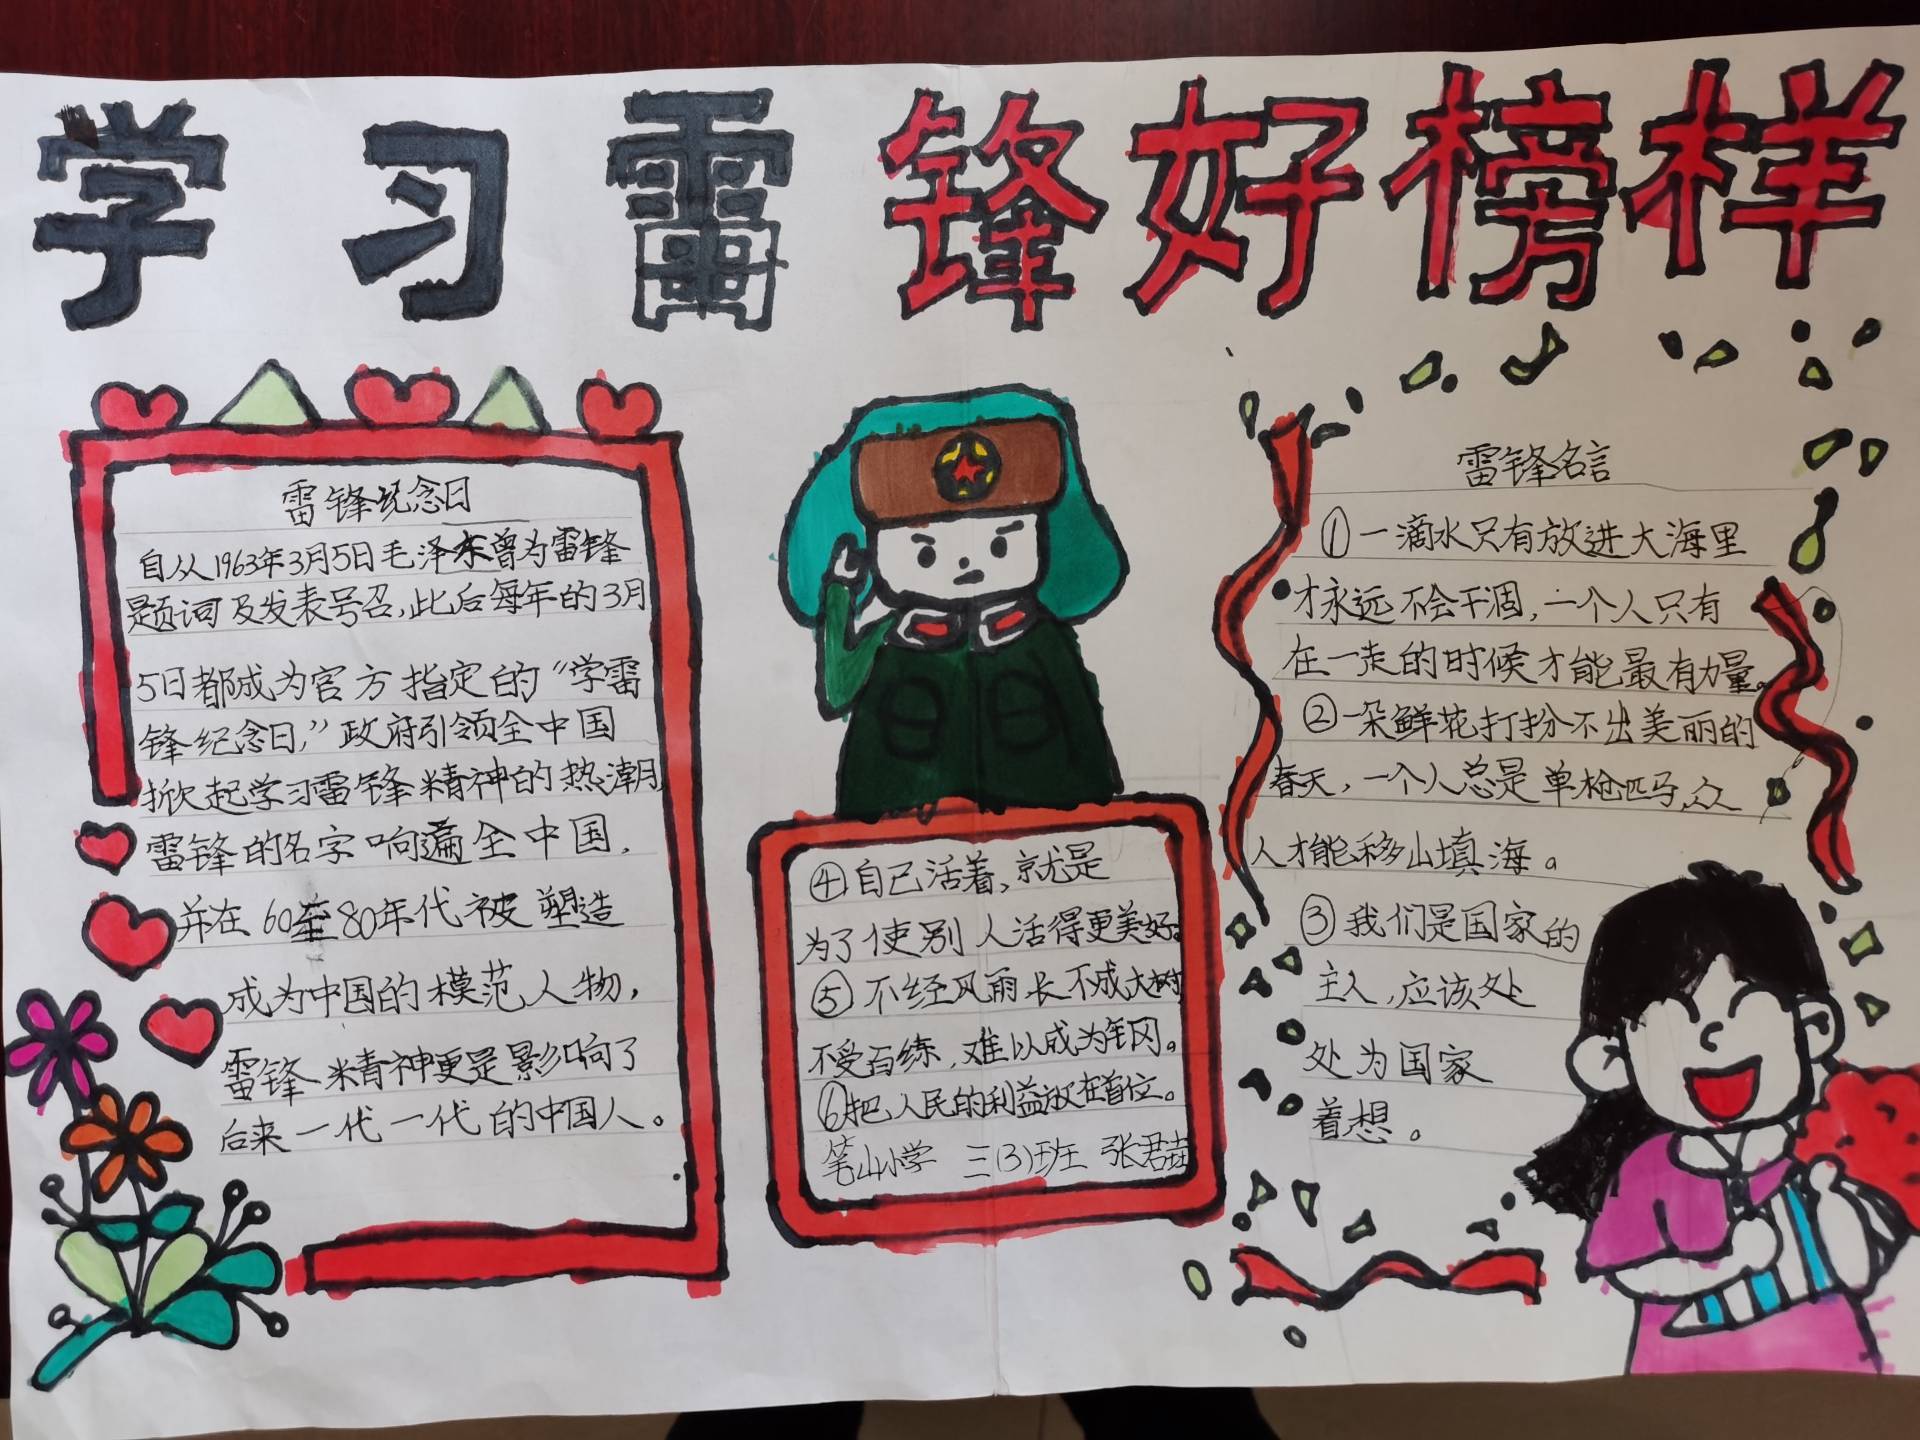 学习雷锋好榜样
雷锋纪念日
自从1963年3月5日毛泽东曾为雷锋
题词及发表号召,此后每年的3月
5日都成为官方指定的“学雷
锋纪念日,”政府引领全中国
掀起学习雷锋精神的热潮
雷锋的名字响遍全中国,
并在60至80年代被塑造
成为中国的模范人物,
雷锋精神更是影响了
后来一代一代的中国人。
④自己活着,就是
为了使别人活得更美好。
⑤不经风雨长不成大树
不受百练,难以成为钢。
⑥把人民的利益放在首位。
笔山小学 三(3)班 张君
雷锋名言
①一滴水只有放进大海里
才永远不会干涸,一个人只有
在一走的时候才能最有力量。
②一朵鲜花打扮不出美丽的
春天,一个人总是单枪匹马,众
人才能移山填海。
③我们是国家的
主人,应该处
处为国家
着想。